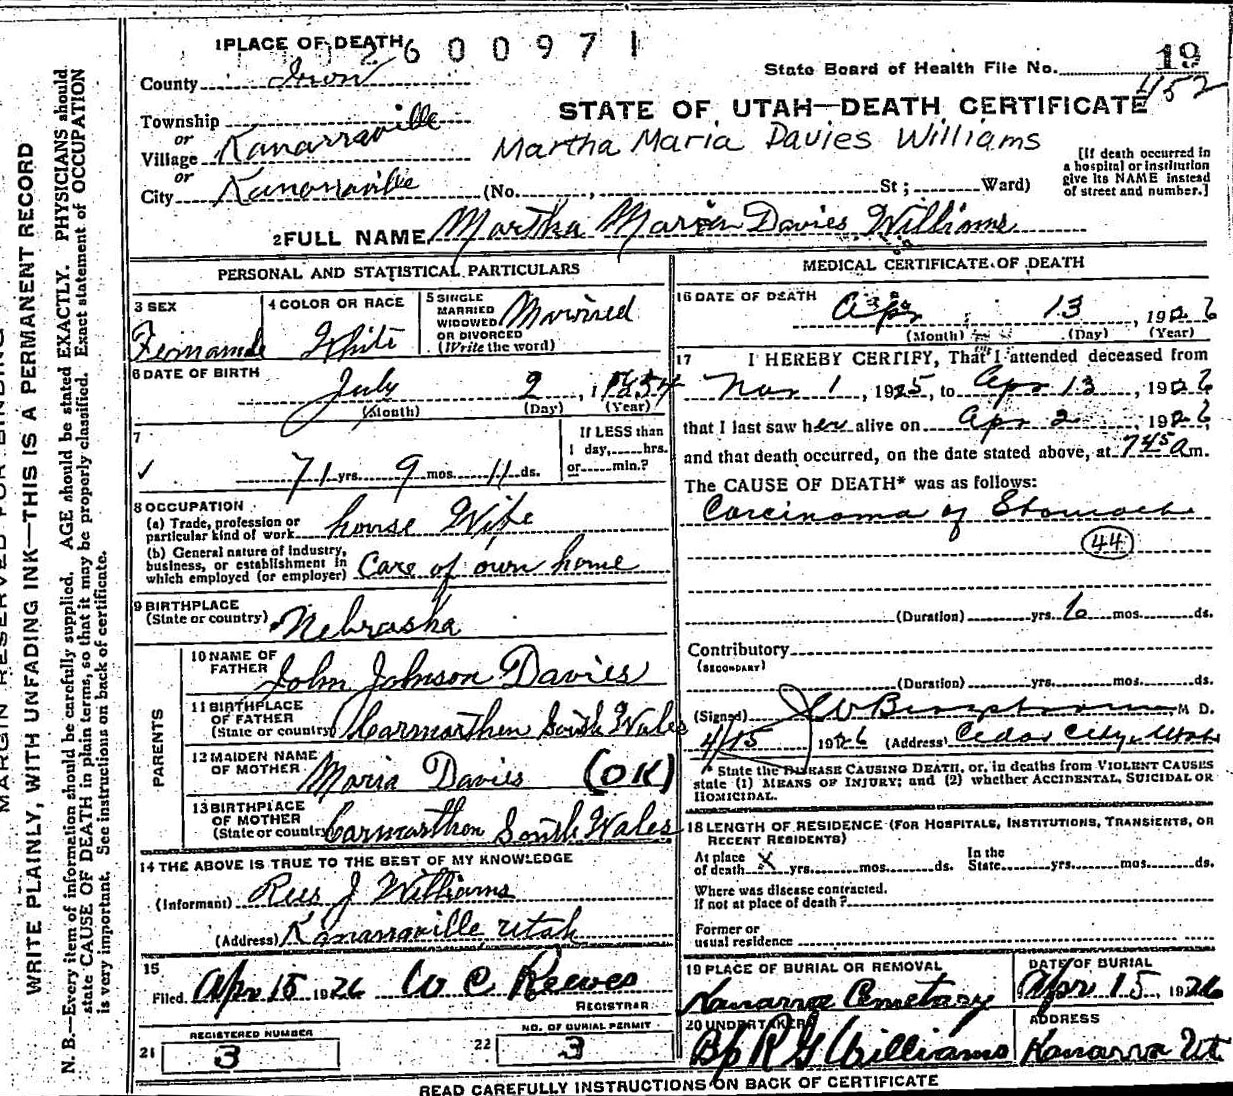 1 PLACE OF DEATH 02600971
County Iron
State Board of Health File No. 19
452
STATE OF UTAH—DEATH CERTIFICATE
Township
or
Village Kanarraville
or
City Kanarraville (No. , St; Ward)
Martha Maria Davies Williams
[If death occurred in
a hospital or institution
give its NAME instead
of street and number.]
2 FULL NAME Martha Maria Davies Williams
PERSONAL AND STATISTICAL PARTICULARS
3 SEX
Female
4 COLOR OR RACE
White
5 SINGLE
MARRIED
WIDOWED
OR DIVORCED
(Write the word)
Married
6 DATE OF BIRTH
July 2, 1854
(Month) (Day) (Year)
7
If LESS than
1 day, hrs.
or min.?
✓ 71 yrs. 9 mos. 11 ds.
8 OCCUPATION
(a) Trade, profession or
particular kind of work house Wife
(b) General nature of industry,
business, or establishment in
which employed (or employer) Care of own home
9 BIRTHPLACE
(State or country) Nebraska
PARENTS
10 NAME OF
FATHER John Johnson Davies
11 BIRTHPLACE
OF FATHER
(State or country) Carmarthen South Wales
12 MAIDEN NAME
OF MOTHER Maria Davies (OK)
13 BIRTHPLACE
OF MOTHER
(State or country) Carmarthen South Wales
14 THE ABOVE IS TRUE TO THE BEST OF MY KNOWLEDGE
(Informant) Rees J Williams
(Address) Kanarraville Utah
15
Filed Apr 15 1926 W C Reeves
REGISTRAR
REGISTERED NUMBER
21 3
NO. OF BURIAL PERMIT
22 3
MEDICAL CERTIFICATE OF DEATH
16 DATE OF DEATH
Apr 13, 1926
(Month) (Day) (Year)
17 I HEREBY CERTIFY, That I attended deceased from
Nov 1, 1925, to Apr 13, 1926
that I last saw her alive on Apr 2, 1926,
and that death occurred, on the date stated above, at 7 45 a m.
The CAUSE OF DEATH* was as follows:
Carcinoma of Stomach
44
(Duration) yrs. 6 mos. ds.
Contributory
(SECONDARY)
(Duration) yrs. mos. ds.
(Signed) M D.
4/15 1926 (Address) Cedar City, Utah
* State the DISEASE CAUSING DEATH, or, in deaths from VIOLENT CAUSES
state (1) MEANS OF INJURY; and (2) whether ACCIDENTAL, SUICIDAL OR
HOMICIDAL.
18 LENGTH OF RESIDENCE (FOR HOSPITALS, INSTITUTIONS, TRANSIENTS, OR
RECENT RESIDENTS)
At place
of death X yrs. mos. ds.
In the
State yrs. mos. ds.
Where was disease contracted.
If not at place of death?
Former or
usual residence
19 PLACE OF BURIAL OR REMOVAL
Kanarra Cemetary
DATE OF BURIAL
Apr 15, 1926
20 UNDERTAKER
Bp R G Williams
ADDRESS
Kanarra Ut
READ CAREFULLY INSTRUCTIONS ON BACK OF CERTIFICATE
MARGIN RESERVED FOR BINDING
WRITE PLAINLY, WITH UNFADING INK—THIS IS A PERMANENT RECORD
N. B.—Every item of information should be carefully supplied. AGE should be stated EXACTLY. PHYSICIANS should
state CAUSE OF DEATH in plain terms, so that it may be properly classified. Exact statement of OCCUPATION
is very important. See instructions on back of certificate.